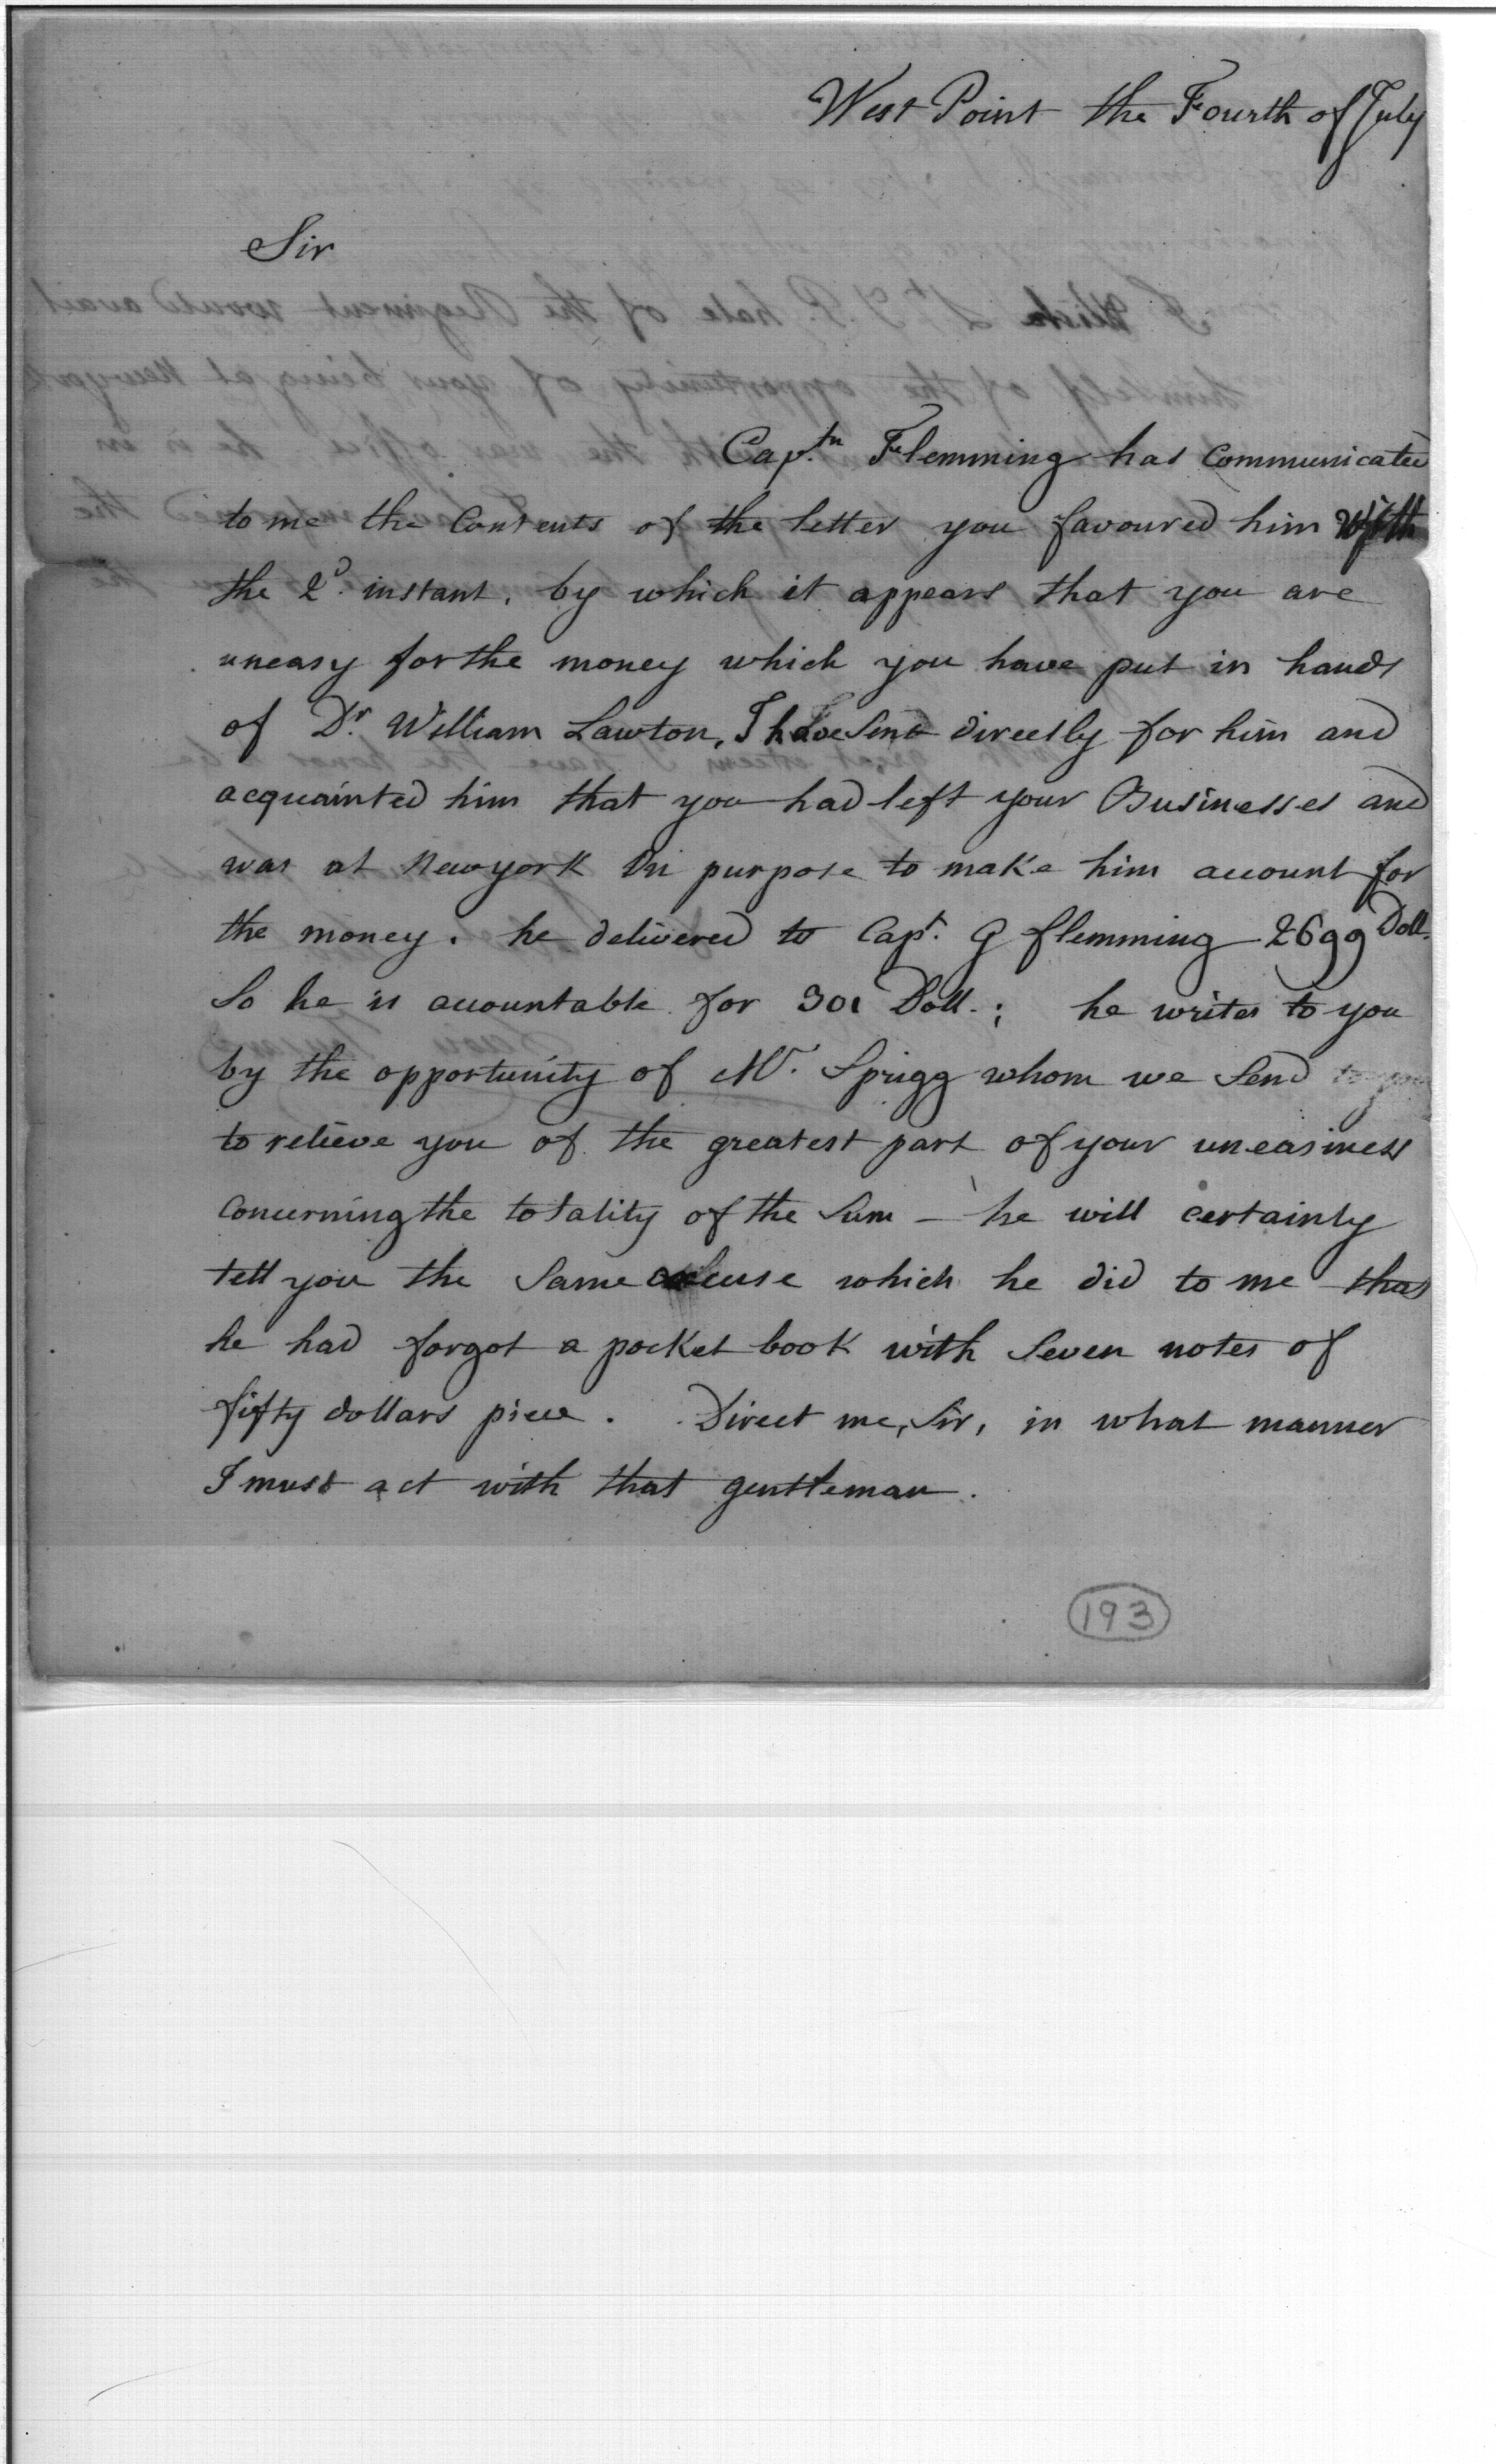 West Point the Fourth of July
Sir
Cap.tn Flemming has Communicated
to me the Contents of the letter you favoured him With
the 2d. instant, by which it appears that you are
uneasy for the money which you have put in hands
of Dr. William Lawton, I have Send directly for him and
acquainted him that you had left your Businesses and
was at Newyork on purpose to make him account for
the money. he delivered to Capt. G flemming 2699 Doll.
So he is accountable for 301 Doll.; he writes to you
by the opportunity of Mr. Sprigg whom we Send to you
to relieve you of the greatest part of your uneasiness
Concerning the totality of the Sum – he will certainly
tell you the Same which he did to me that
he had forgot a pocket book with Seven notes of
fifty dollars piece. Direct me, Sir, in what manner
I must act with that gentleman.
193